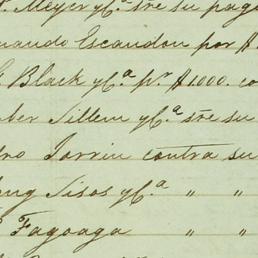 Meyer y Cª sre su paga
nando Escandon por $
Black y Cª pr $1000. co
ber Sillem y Cª sre su
ro Jorrin contra su
ng Sisos y Cª " "
Fagoaga " "